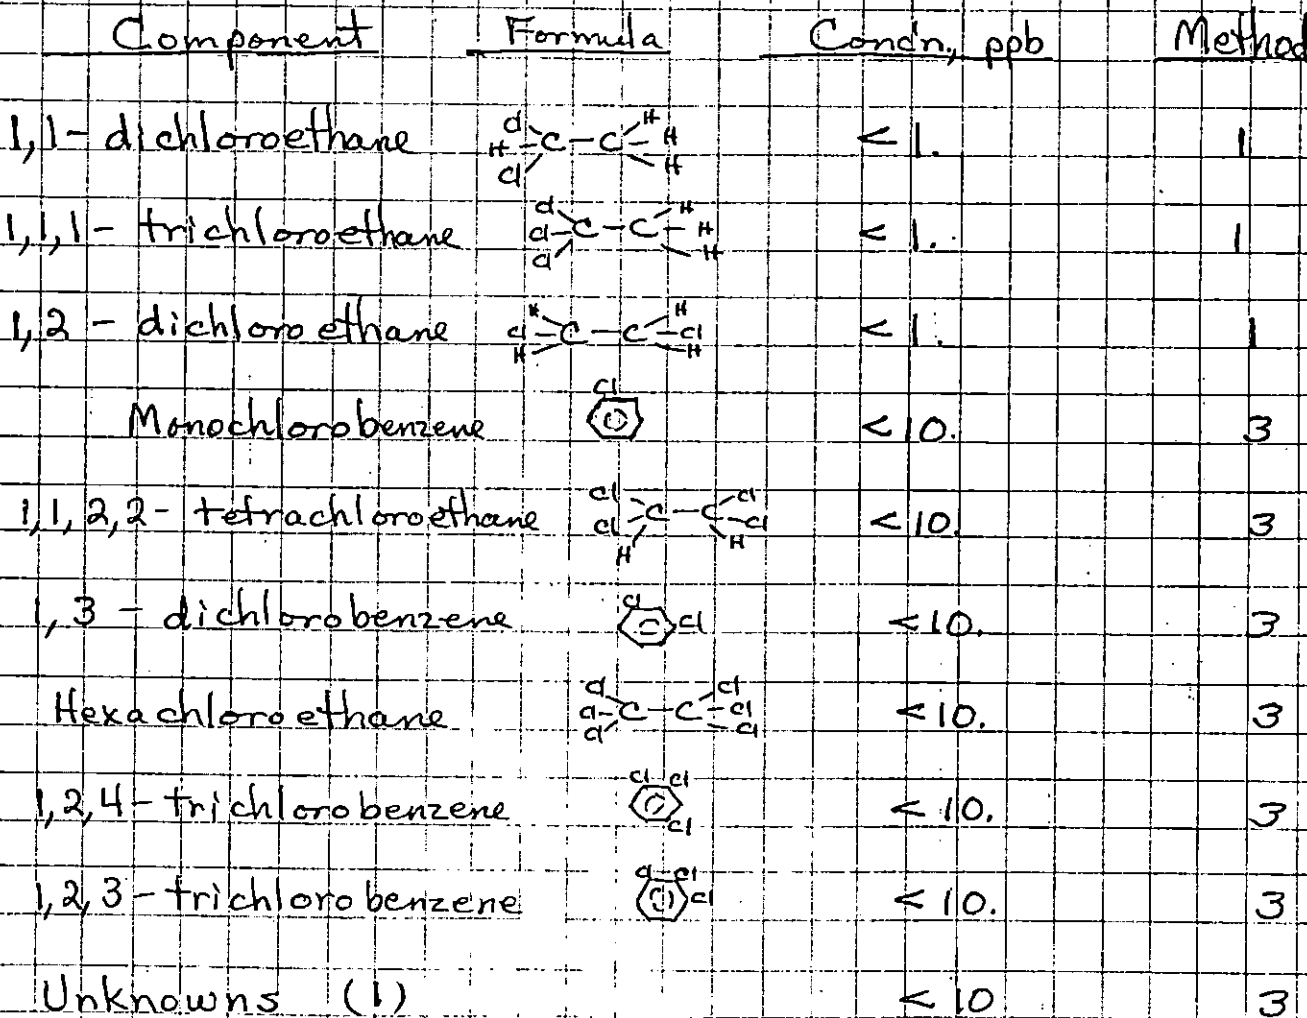 Component Formula Concn, ppb Method
1,1- dichloroethane Cl H Cl C-C H H H < 1. 1
1,1,1- trichloroethane Cl Cl Cl C-C H H H < 1. 1
1,2 - dichloroethane H Cl H C-C H Cl H < 1. 1
Monochlorobenzene Cl < 10. 3
1,1,2,2- tetrachloroethane Cl Cl H C-C Cl Cl H < 10. 3
1,3 - dichlorobenzene Cl Cl < 10. 3
Hexachloroethane Cl Cl Cl C-C Cl Cl Cl < 10. 3
1,2,4- trichlorobenzene Cl Cl Cl < 10. 3
1,2,3- trichlorobenzene Cl Cl Cl < 10. 3
Unknowns (1) < 10 3